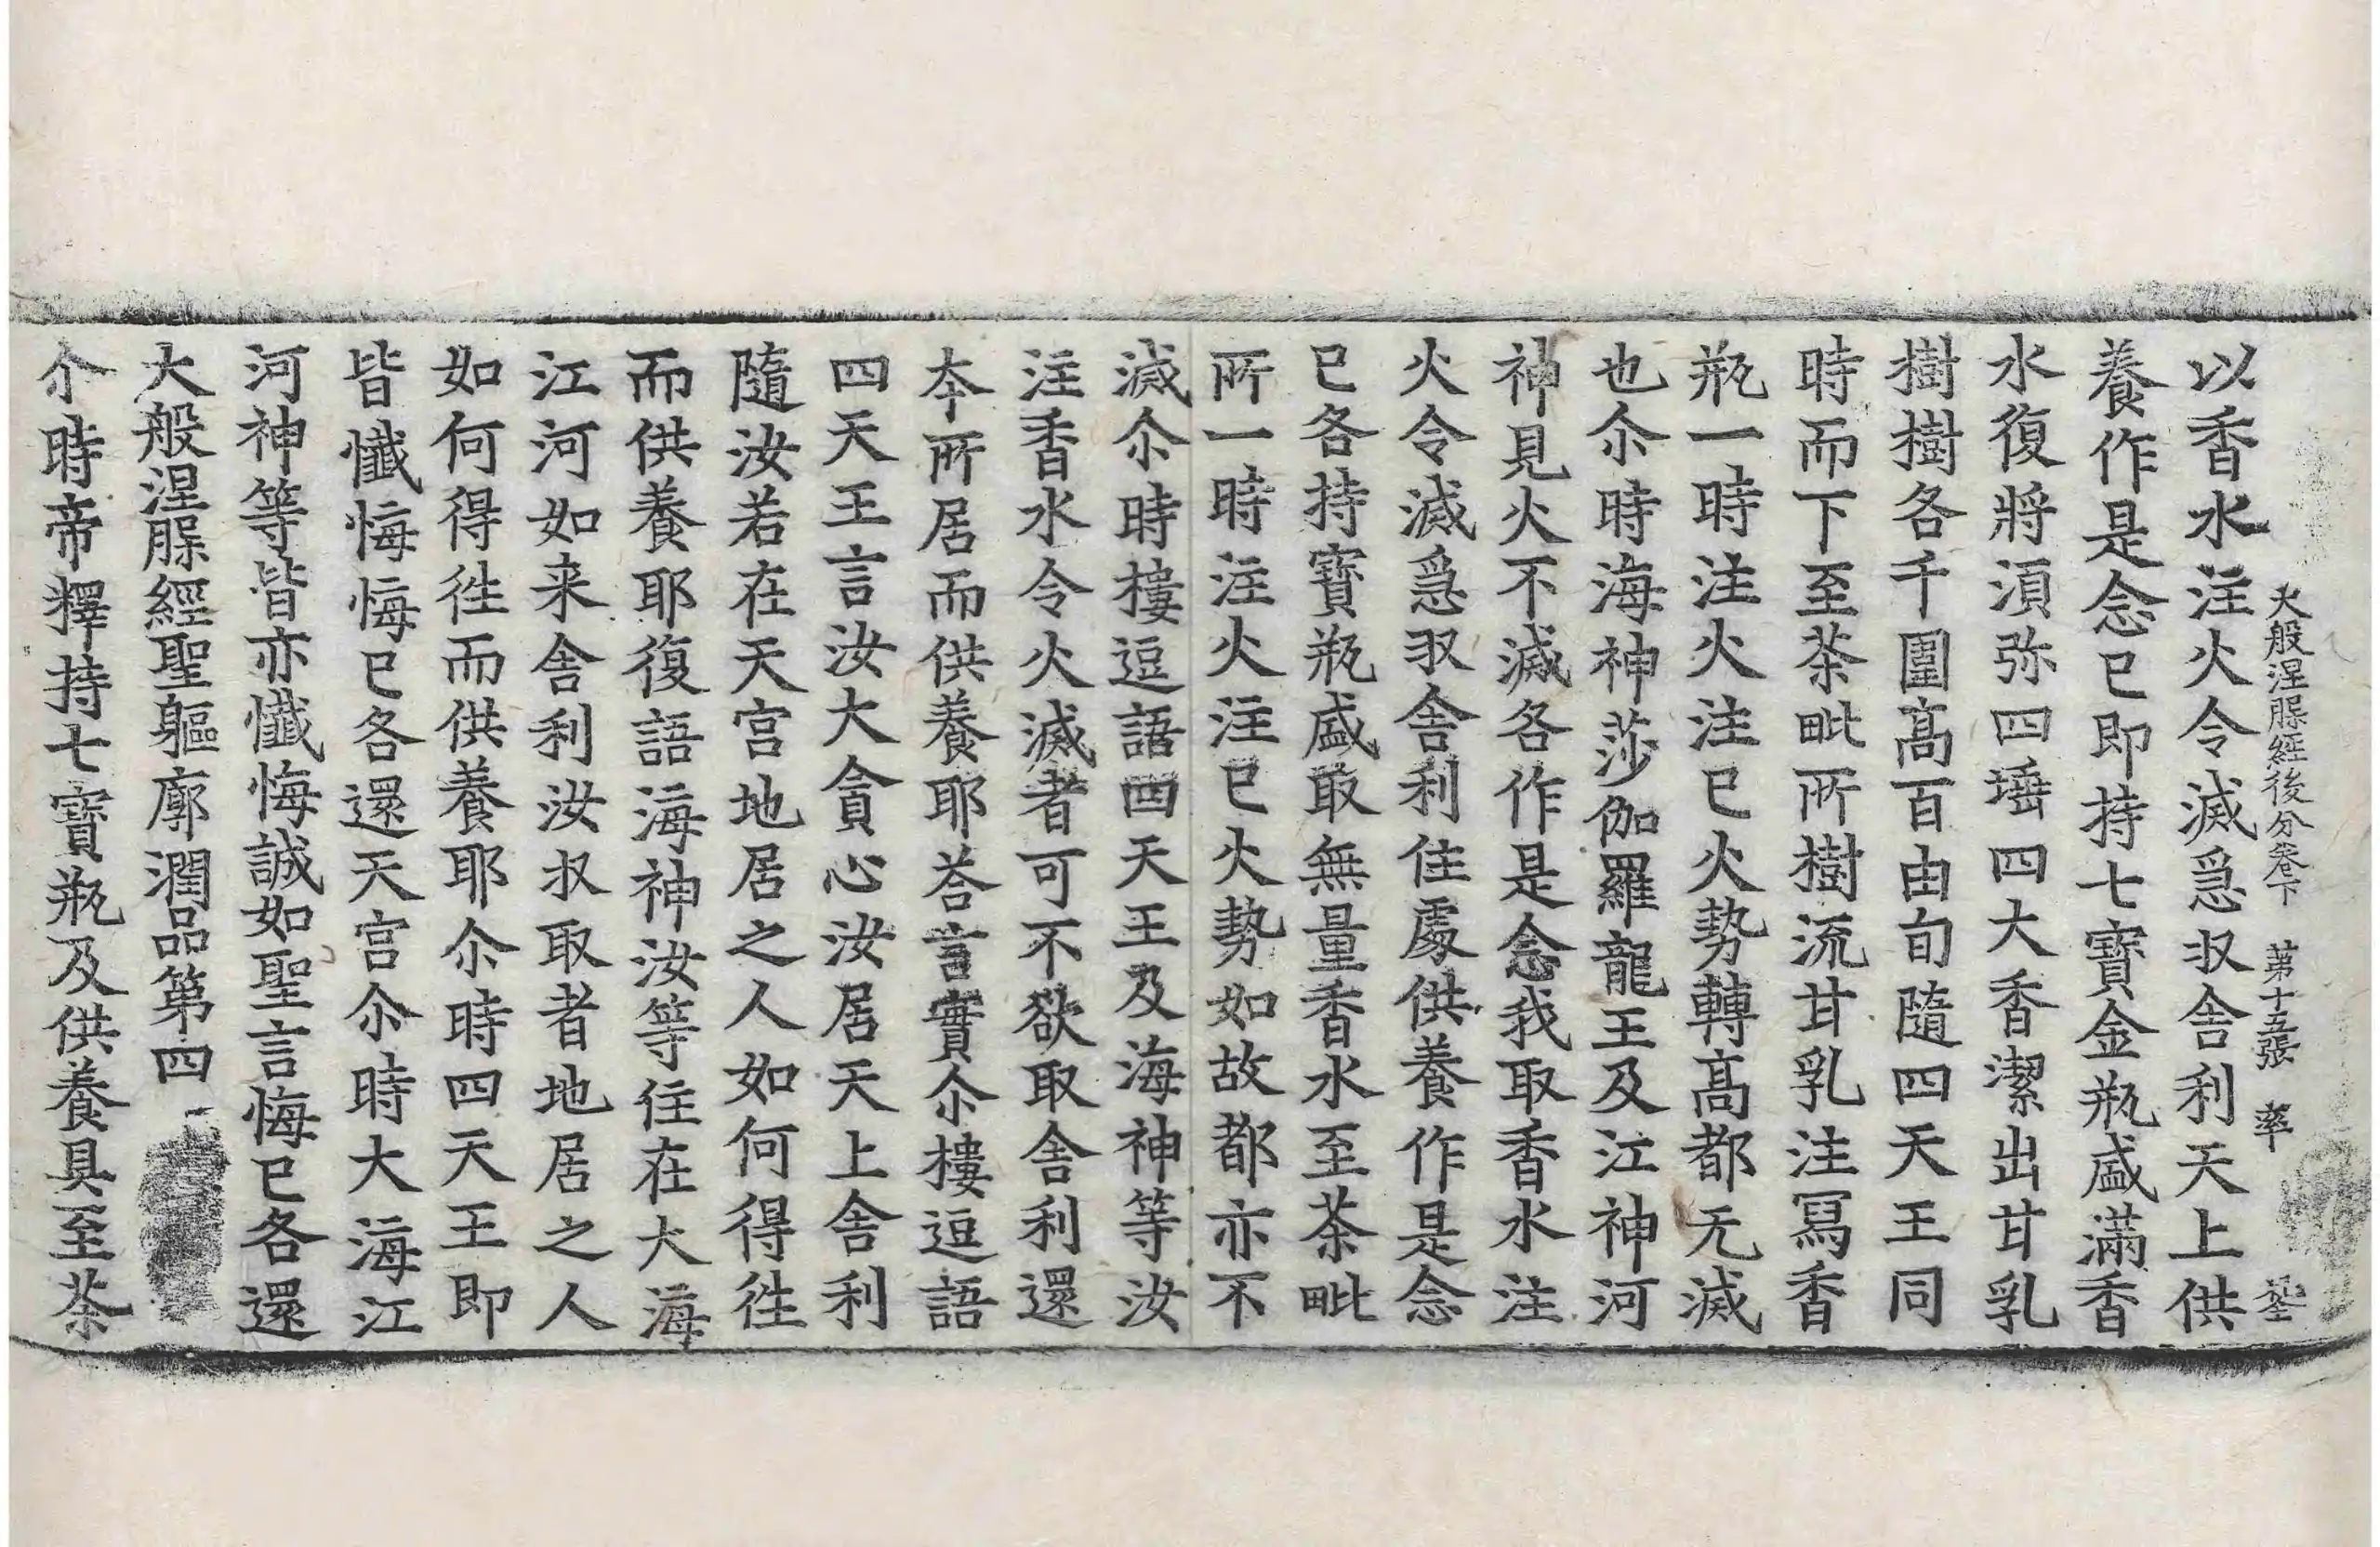 大般涅槃經後分卷下　第十五張　率
以香水注火令滅急収舍利天上供
養作是念已即持七寶金瓶盛滿香
水復將湏弥四埵四大香潔出甘乳
樹樹各千圍髙百由旬隨四天王同
時而下至茶毗所樹流甘乳注冩香
瓶一時注火注已火勢轉髙都无滅
也尒時海神莎伽羅龍王及江神河
神見火不滅各作是念我取香水注
火令滅急収舍利住處供養作是念
已各持寶瓶盛取無量香水至茶毗
所一時注火注已火勢如故都亦不
滅尒時樓逗語四天王及海神等汝
注香水令火滅者可不欲取舍利還
夲所居而供養耶荅言實尒樓逗語
四天王言汝大貪心汝居天上舍利
隨汝若在天宫地居之人如何得徃
而供養耶復語海神汝等住在大海
江河如来舍利汝収取者地居之人
如何得徃而供養耶尒時四天王即
皆懺悔悔已各還天宫尒時大海江
河神等皆亦懺悔誠如聖言悔已各還
大般涅槃經聖軀廓潤品第四
尒時帝釋持七寶瓶及供養具至茶